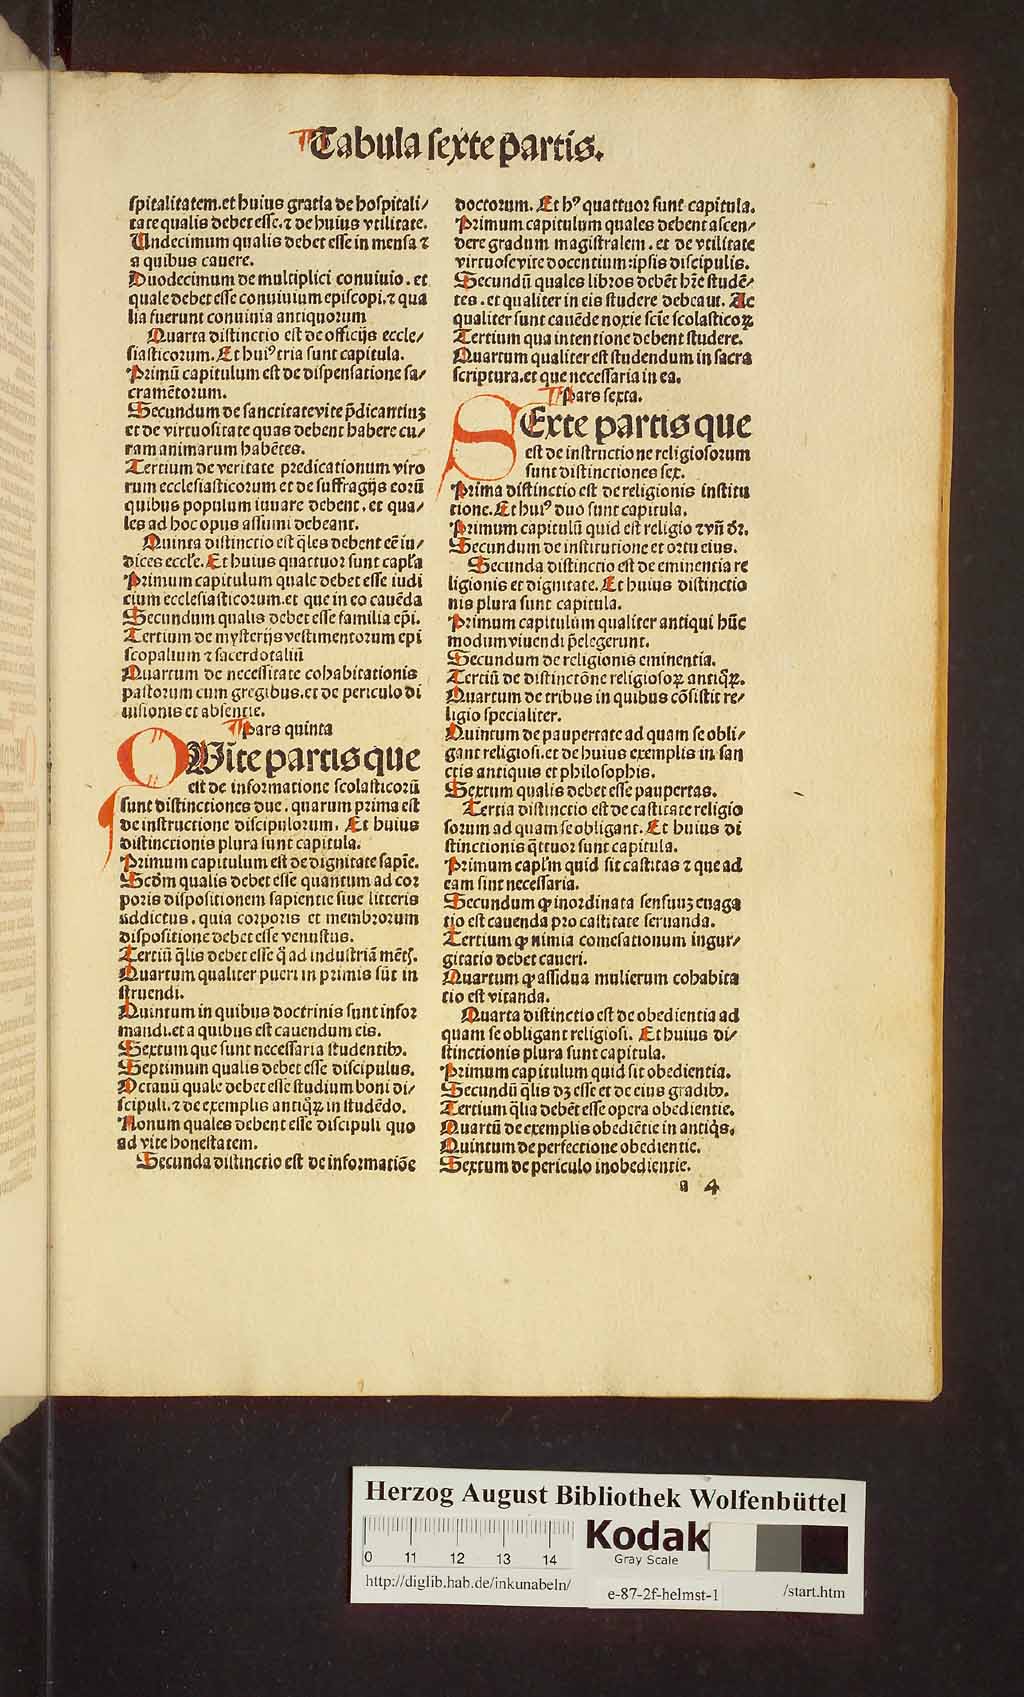 Tabula sexte partis.
spitalitatem.et huius gratia de hospitali/
tate qualis debet esse.⁊ de huius vtilitate.
Undecimum qualis debet esse in mensa ⁊
a quibus cauere.
Duodecimum de multiplici conuiuio. et
quale debet esse conuiuium episcopi.⁊ qua
lia fuerunt conuiuia antiquorum
Quarta distinctio est de officijs eccle/
siasticorum. Et huiꝰ tria sunt capitula.
Primū capitulum est de dispensatione sa/
cramētorum.
Secundum de sanctitate vite p̄dicantiuꝫ
et de virtuositate quas debent habere cu/
ram animarum habētes.
Tertium de veritate predicationum viro
rum ecclesiasticorum et de suffragijs eorū
quibus populum iuuare debent. et qua/
les ad hoc opus assumi debeant.
Quinta distinctio est q̄les debent eē iu/
dices eccl̄e. Et huius quattuor sunt capl̄a
Primum capitulum quale debet esse iudi
cium ecclesiasticorum.et que in eo cauēda
Secundum qualis debet esse familia ep̄i.
Tertium de mysterijs vestimentorum epi
scopalium ⁊ sacerdotaliū
Quartum de necessitate cohabitationis
pastorum cum gregibus.et de periculo di
uisionis et absentie.
Pars quinta
QWīte partis que
est de informatione scolasticorū
sunt distinctiones due. quarum prima est
de instructione discipulorum. Et huius
distinctionis plura sunt capitula.
Primum capitulum est de dignitate sapīe.
Scd̄m qualis debet esse quantum ad cor
poris dispositionem sapientie siue litteris
addictus. quia corporis et membrorum
dispositione debet esse venustus.
Tertiū q̄lis debet esse q̄ ad industriā mētꝭ.
Quartum qualiter pueri in primis sūt in
struendi.
Quintum in quibus doctrinis sunt infor
mandi.et a quibus est cauendum eis.
Sextum que sunt necessaria studentibꝫ.
Septimum qualis debet esse discipulus.
Octauū quale debet esse studium boni di/
scipuli.⁊ de exemplis antiq̄ꝝ in studēdo.
Nonum quales debent esse discipuli quo
ad vite honestatem.
Secunda distinctio est de informatiōe
doctorum. Et hꝰ quattuor sunt capitula.
Primum capitulum quales debent ascen/
dere gradum magistralem. et de vtilitate
virtuose vite docentium:ipsis discipulis.
Secundū quales libros debēt hr̄e studē/
tes. et qualiter in eis studere debeaut. Ac
qualiter sunt cauēde noxie scīe scolasticoꝝ
Tertium qua intentione debent studere.
Quartum qualiter est studendum in sacra
scriptura.et que necessaria in ea.
Pars sexta.
SExte partis que
est de instructione religiosorum
sunt distinctiones sex.
Prima distinctio est de religionis institu
tione. Et huiꝰ duo sunt capitula.
Primum capitulū quid est religio ⁊ vn̄ dr̄.
Secundum de institutione et ortu eius.
Secunda distinctio est de eminentia re
ligionis et dignitate. Et huius distinctio
nis plura sunt capitula.
Primum capitulum qualiter antiqui hūc
modum viuendi p̄elegerunt.
Secundum de religionis eminentia.
Tertiū de distinctōne religiosoꝝ antiq̄ꝝ.
Quartum de tribus in quibus cōsistit re/
ligio specialiter.
Quintum de paupertate ad quam se obli/
gant religiosi.et de huius exemplis in san
ctis antiquis et philosophis.
Sextum qualis debet esse paupertas.
Tertia distinctio est de castitate religio
sorum ad quam se obligant. Et huius di
stinctionis q̄ttuor sunt capitula.
Primum capl̄m quid sit castitas ⁊ que ad
eam sint necessaria.
Secundum ꝙ inordinata sensuuꝫ euaga
tio est cauenda pro castitate seruanda.
Tertium ꝙ nimia comesationum ingur/
gitatio debet caueri.
Quartum ꝙ assidua mulierum cohabita
tio est vitanda.
Quarta distinctio est de obedientia ad
quam se obligant religiosi. Et huius di/
stinctionis plura sunt capitula.
Primum capitulum quid sit obedientia.
Secundū q̄lis dꝫ esse et de eius gradibꝫ.
Tertium q̄lia debēt esse opera obedientie.
Quartū de exemplis obediētie in antiq̄s.
Quintum de perfectione obedientie.
Sextum de periculo inobedientie.
a 4
Herzog August Bibliothek Wolfenbüttel
0 11 12 13 14
Kodak
Gray Scale
http://diglib.hab.de/inkunabeln/
e-87-2f-helmst-1
/start.htm